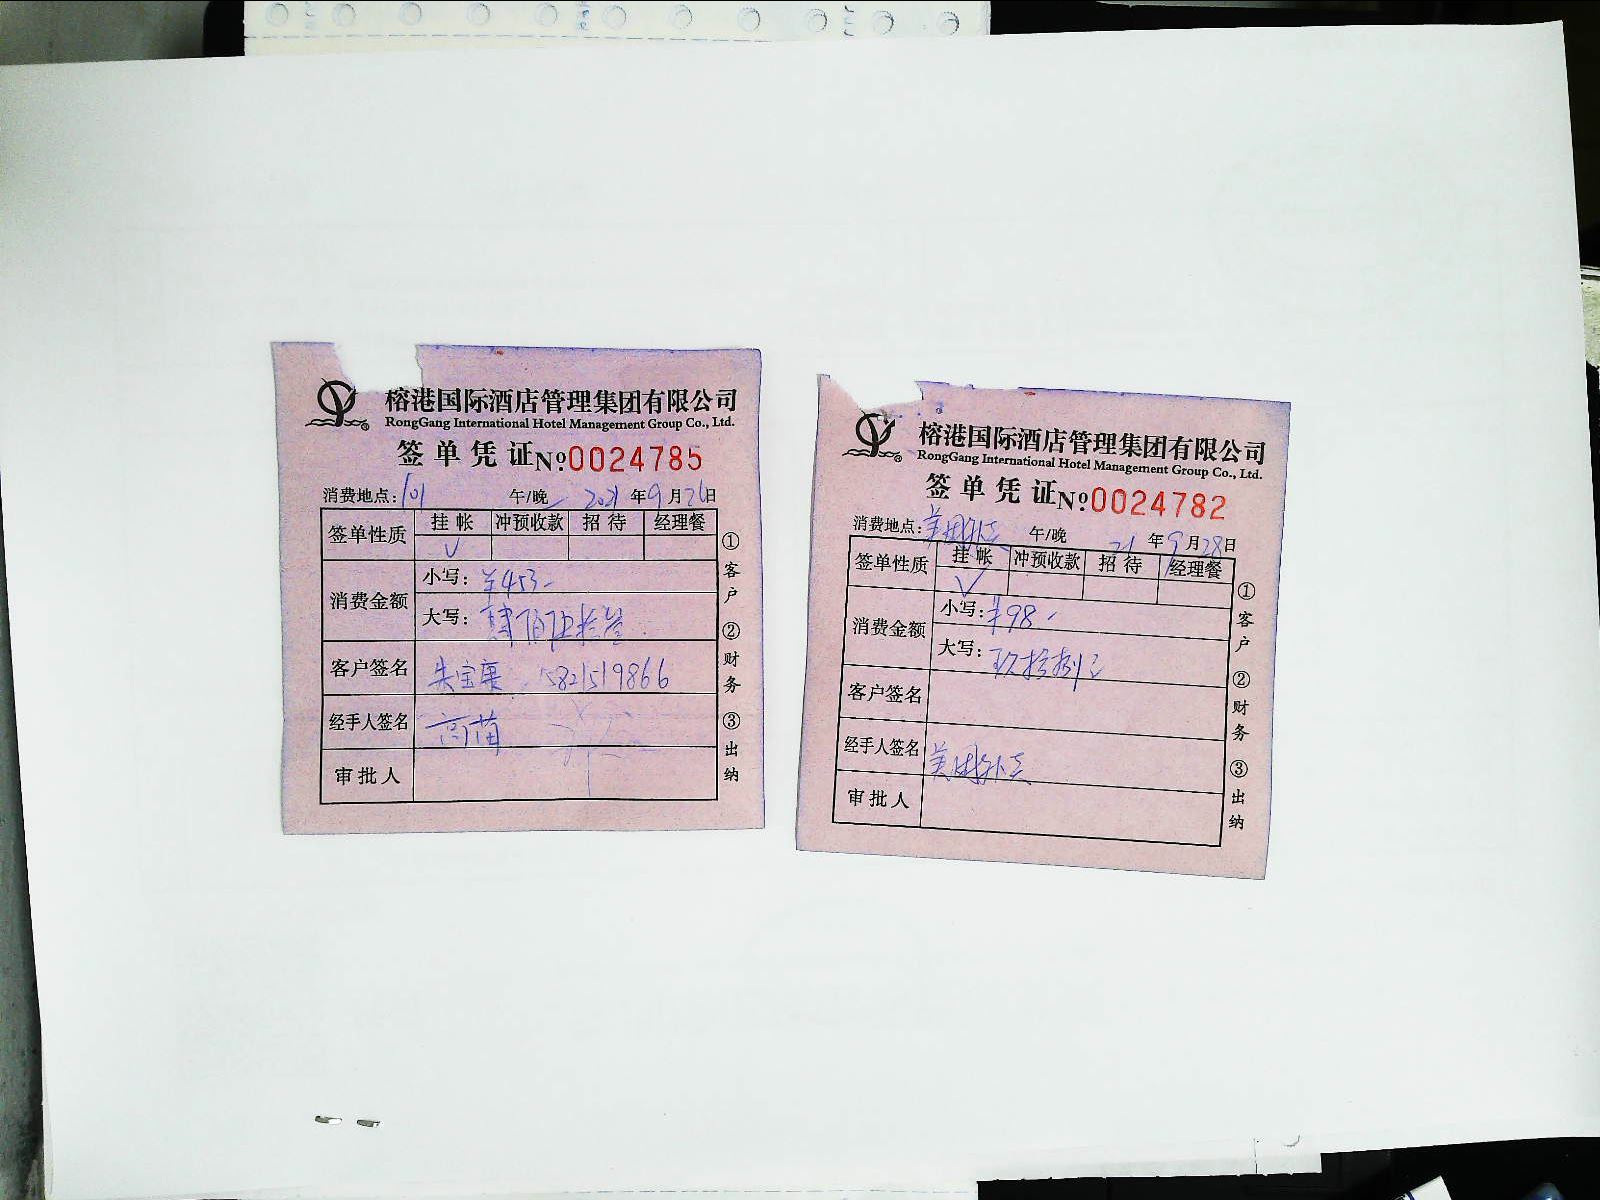 榕港国际酒店管理集团有限公司
RongGang International Hotel Management Group Co., Ltd.
签单凭证 Nº 0024785
消费地点: 101 午/晚 2021 年 9 月 26 日
签单性质 挂帐 冲预收款 招待 经理餐
√
消费金额
小写: ¥453-
大写: 肆佰伍拾叁
客户签名 朱宝 5821519866
经手人签名 高苗
审批人
①客户 ②财务 ③出纳
榕港国际酒店管理集团有限公司
RongGang International Hotel Management Group Co., Ltd.
签单凭证 Nº 0024782
消费地点: 美团外卖 午/晚 21 年 9 月 28 日
签单性质 挂帐 冲预收款 招待 经理餐
√
消费金额
小写: ¥98-
大写: 玖拾捌元
客户签名
经手人签名 美团外卖
审批人
①客户 ②财务 ③出纳